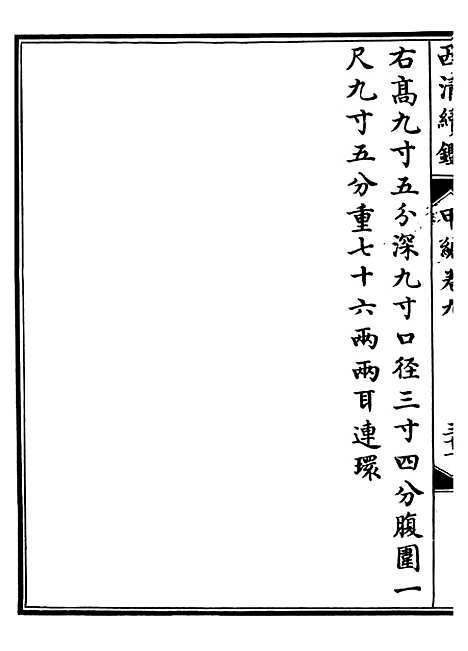 西清續鑑
甲編卷九
三十一
右髙九寸五分深九寸口径三寸四分腹圍一
尺九寸五分重七十六兩兩耳連環